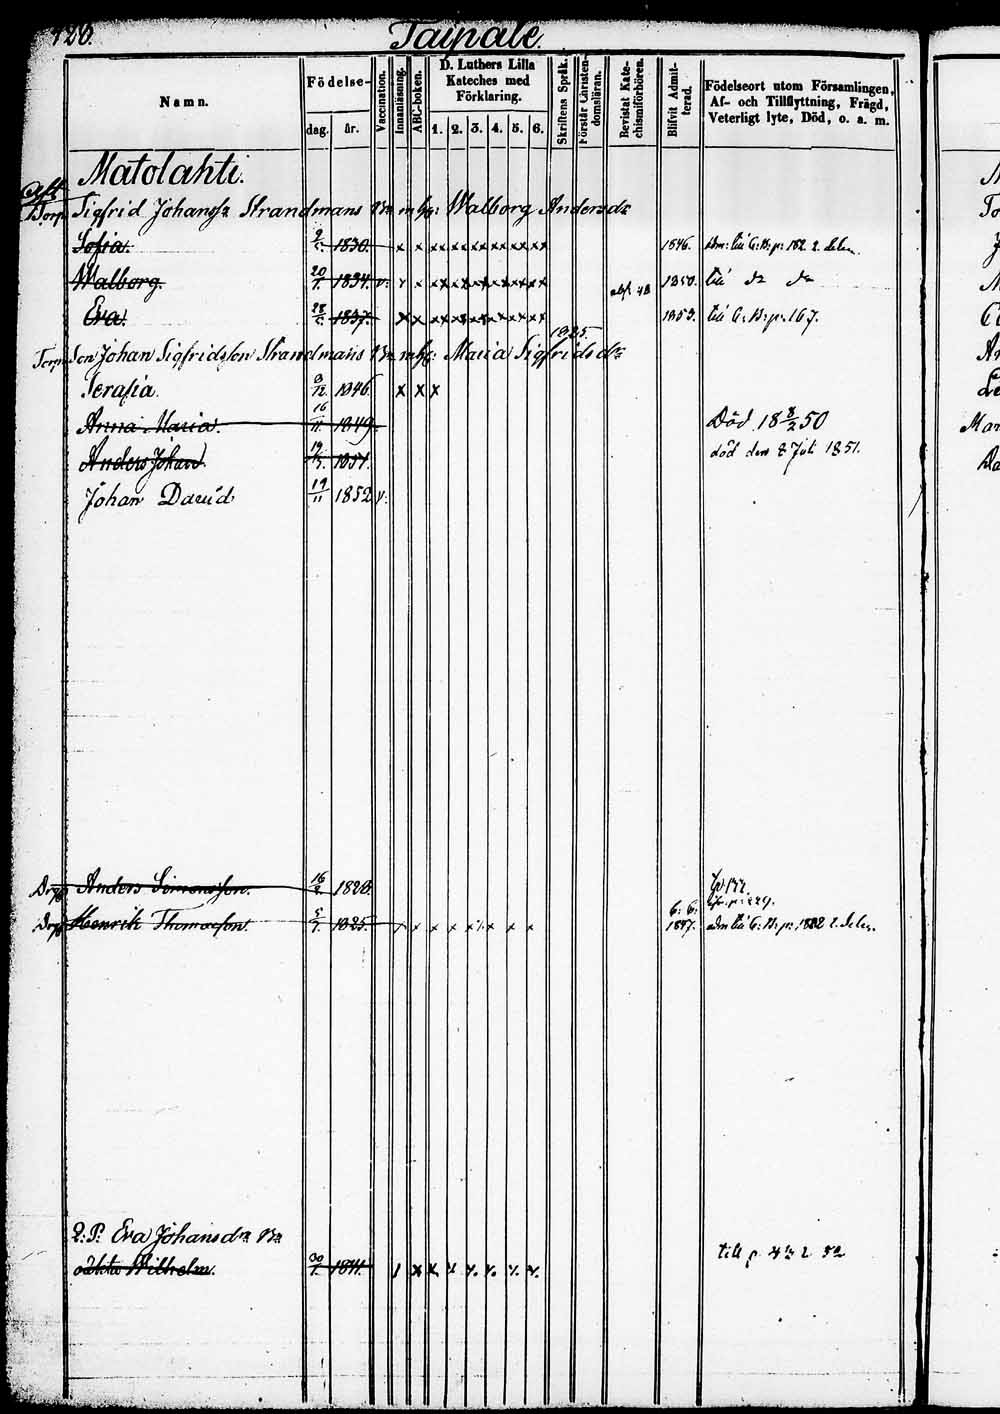 126. Taipale.
Namn. Födelse- dag. år. Vaccination. Innanläsning. ABC-boken. D. Luthers Lilla Kateches med Förklaring. 1. 2. 3. 4. 5. 6. Skriftens Språk. Förstår Christendomsläran. Bevistat Katechismiförhören. Blifvit Admitterad. Födelseort utom Församlingen, Af- och Tillflyttning, Frägd, Veterligt lyte, Död, o. a. m.
Matolahti.
Torp Sigfrid Johanss: Strandmans Bn m h: Walborg Andersdr
Sofia. 9/5 1830. x x x x x x x x x x 1846.
Walborg. 20/7 1834. v. x x x x x x x x 1850. till do do
Eva. 28/5 1837. x x x x x x x x 1853. till
1825.
Son Johan Sigfridsson Strandmans Bn m h: Maria Sigfridsdr
Serafia. 9/12 1846. x x x
Anna Maria. 16/11 1849. Död 18 8/2 50
Anders Johan. 19/5 1851. död den 8 Juli 1851.
Johan David 19/11 1852 v.
Anders Simonsson. 16/2 1820.
Henrik Thomasson. 5/7 1825. x x x x x x x x 1847.
Q. P. Eva Johansdr Bn
oäkta Wilhelm. 30/7 1841. till p.